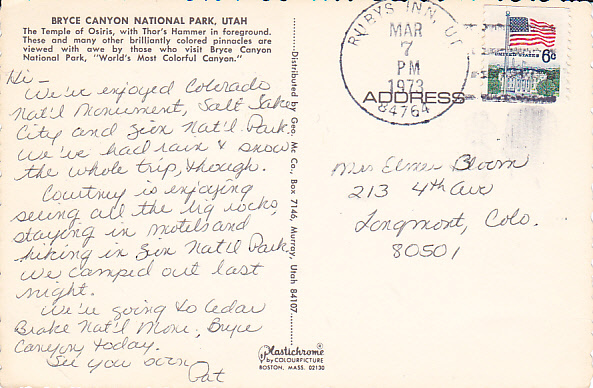 BRYCE CANYON NATIONAL PARK, UTAH
The Temple of Osiris, with Thor's Hammer in foreground.
These and many other brilliantly colored pinnacles are
viewed with awe by those who visit Bryce Canyon
National Park, "World's Most Colorful Canyon."
Hi -
We've enjoyed Colorado
Nat'l Monument, Salt Lake
City and Zion Nat'l Park.
We've had rain & snow
the whole trip, though.
Courtney is enjoying
seeing all the big rocks,
staying in motels and
hiking in Zion Nat'l Park.
We camped out last
night.
We're going to Cedar
Brake Nat'l Mon., Bryce
Canyon today.
See you soon,
Pat
Distributed by Geo. Mc Co., Box 7146, Murray, Utah 84107
Plastichrome®
by COLOURPICTURE
BOSTON, MASS. 02130
RUBYS INN, UT
MAR
7
PM
1973
84764
ADDRESS
UNITED STATES
6¢
Mrs Elmer Bloom
213 4th Ave
Longmont, Colo.
80501